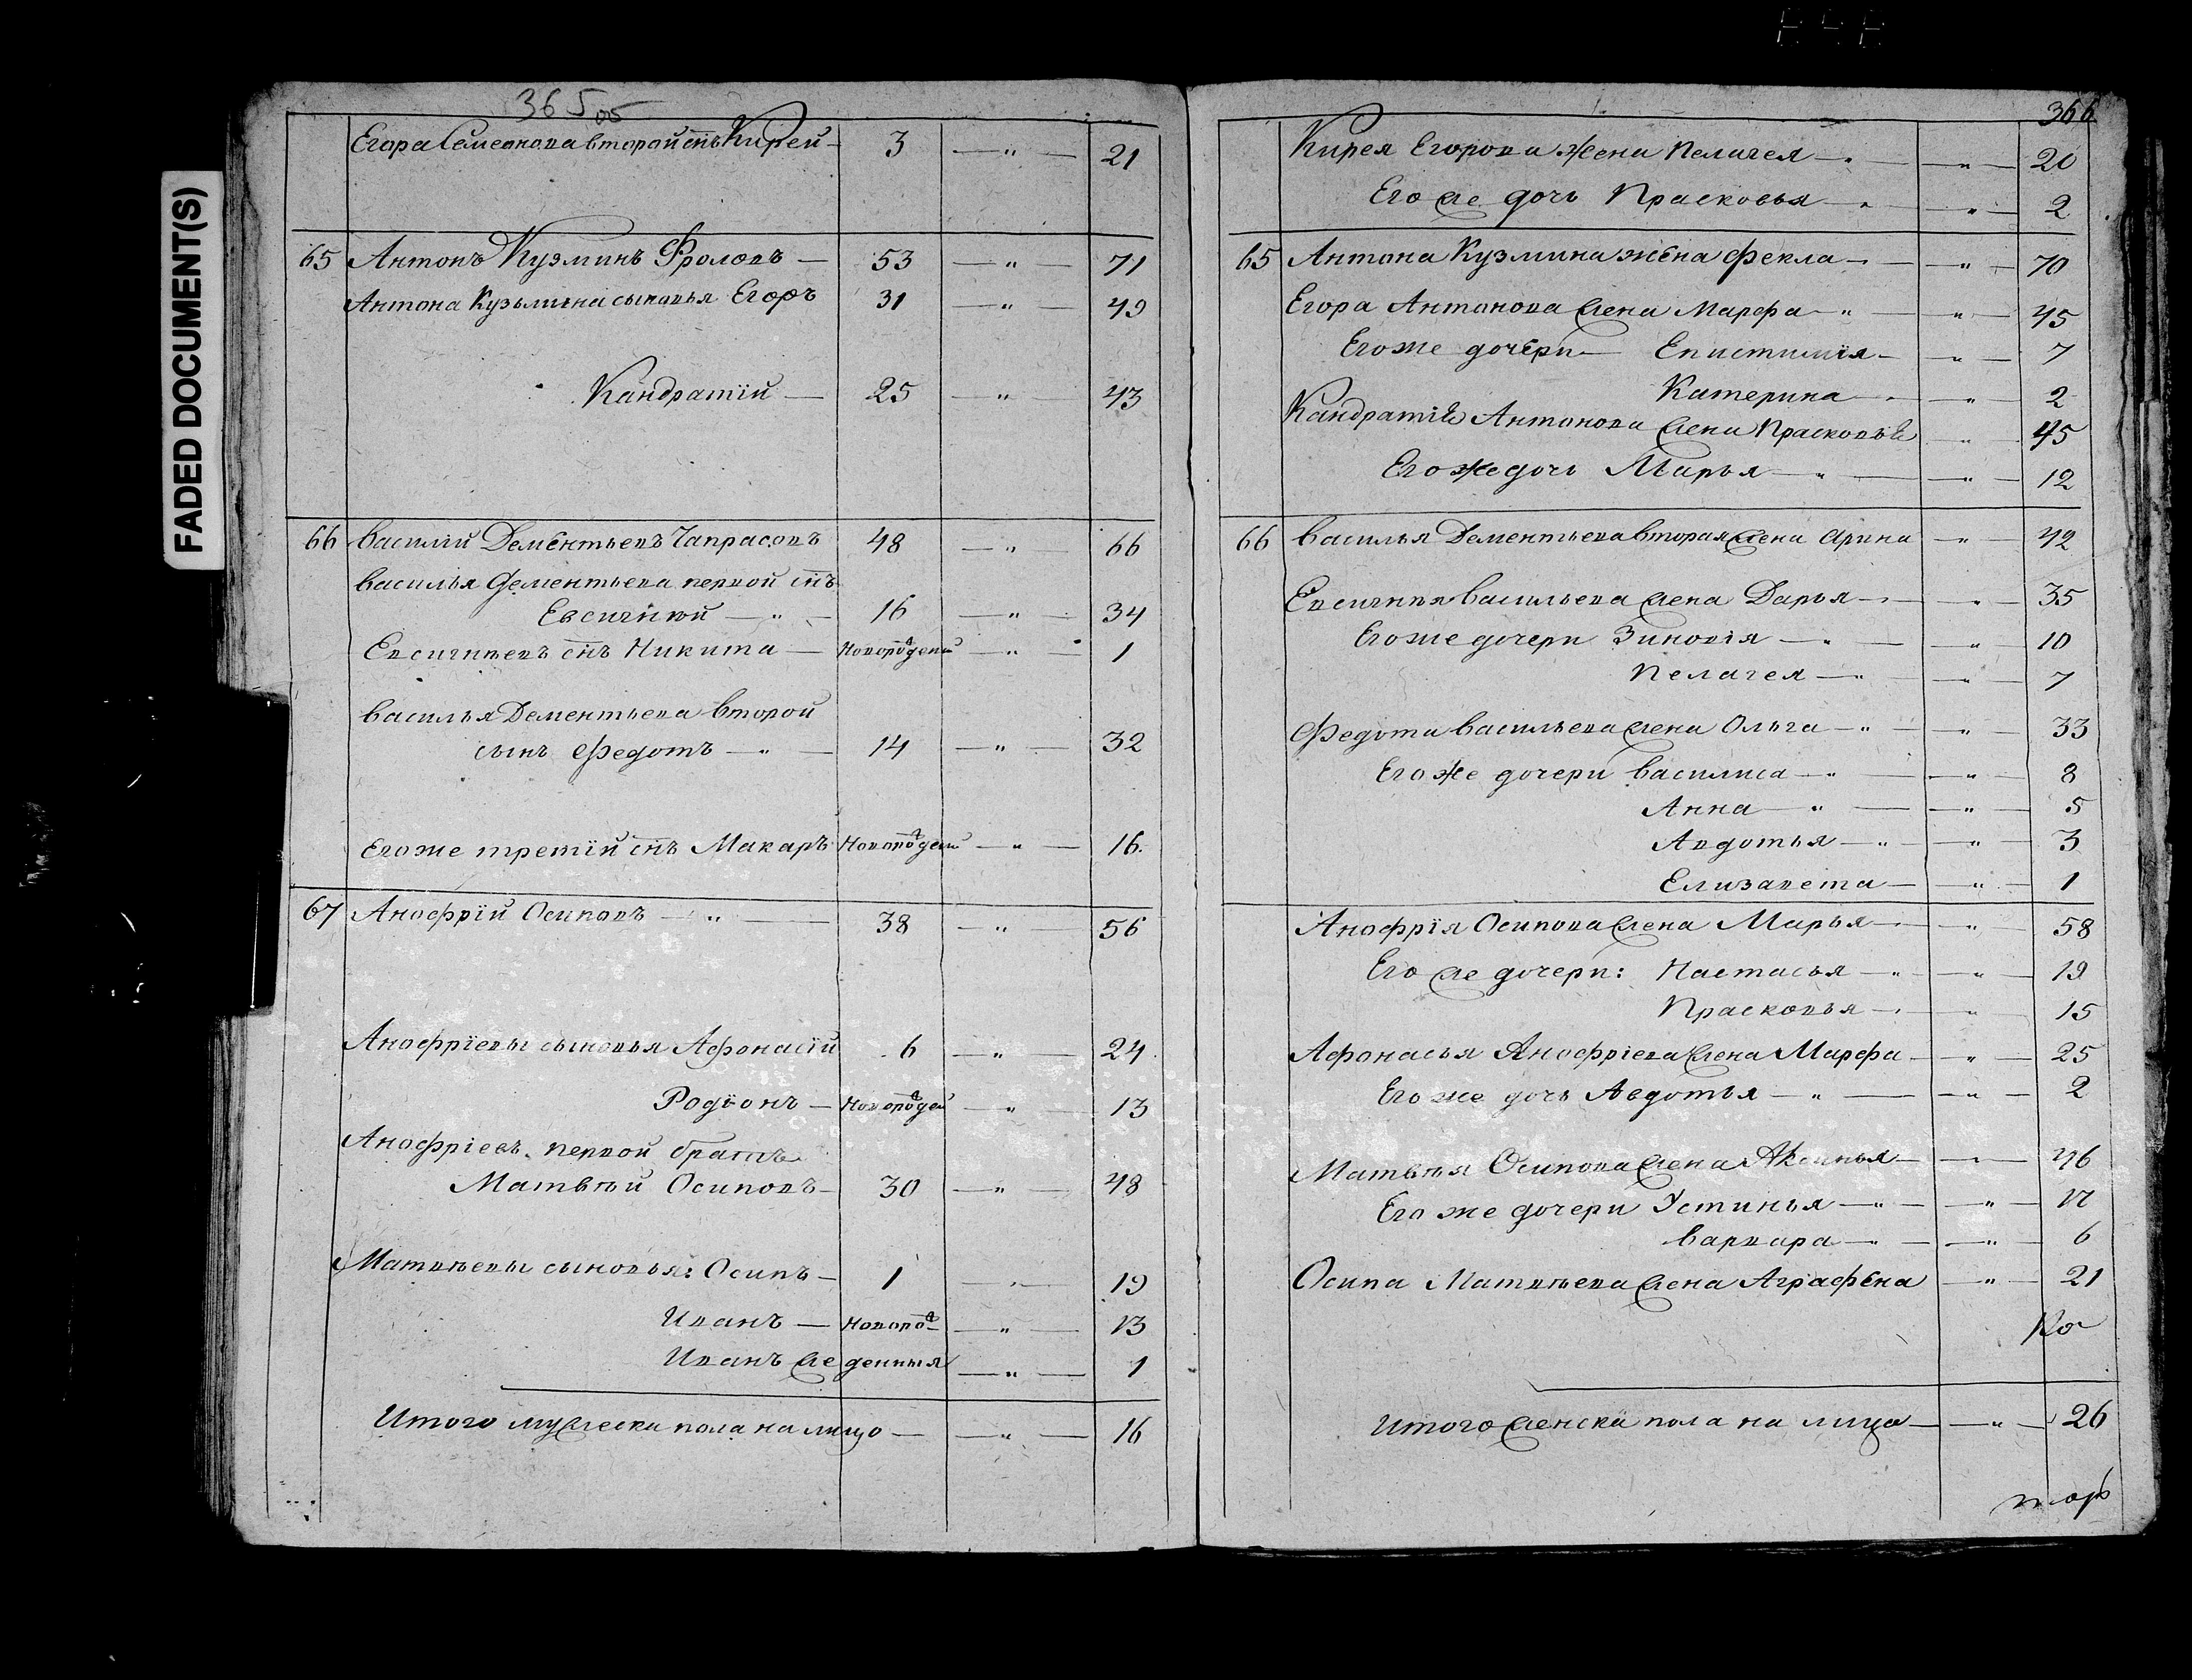 FADED DOCUMENT(S)
365
Егора Семенова второй снъ Кирей — 3 — " — 21
65 Антонъ Кузминъ Фроловъ — 53 — " — 71
Антона Кузьмина сыновья Егоръ 31 — " — 49
Кандратій — 25 — " — 43
66 Василий Дементьевъ Чапрасовъ 48 — " — 66
Василья Дементьева первой снъ
Евсигней — " — 16 — " — 34
Евсигнѣевъ снъ Никита — новорожденый — " — 1
Василья Дементьева второй
сынъ Федотъ — " — 14 — " — 32
Его же третій снъ Макаръ новорожденый — " — 16
67 Анофрій Осиповъ — " — 38 — " — 56
Анофріевы сыновья Афонасій 6 — " — 24
Родіонъ — новорожденый — " — 13
Анофріевъ первой братъ
Матвѣй Осиповъ — 30 — " — 48
Матвѣевы сыновья: Осипъ — 1 — " — 19
Иванъ — новорож- — " — 13
Иванъ же денныя — " — 1
Итого мужеска пола на лицо — " — 16
366
Кирея Егорова жена Пелагея — " — 20
Его же дочь Прасковья — " — 2
65 Антона Кузмина жена Фекла — " — 70
Егора Антонова жена Марфа — " — " — 45
Его же дочери — Епистимія — " — 7
Катерина — " — 2
Кандратія Антонова жена Прасковья " 45
Его же дочь Марья — " — " — 12
66 Василья Дементьева вторая жена Арина — " — 42
Евсигнѣя Васильева жена Дарья — " — 35
Его же дочери Зиновія — " — " — 10
Пелагея — " — " — 7
Федота Васильева жена Ольга — " — " — 33
Его же дочери Василиса — " — " — 8
Анна — " — " — 5
Авдотья — " — " — 3
Елизавета — " — 1
Анофрія Осипова жена Марья — " — 58
Его же дочери: Настасья — " — " — 19
Прасковья — " — 15
Афонасья Анофріева жена Марфа — " — 25
Его же дочь Авдотья — " — " — 2
Матвѣя Осипова жена Аксинья — " — 46
Его же дочери Устинья — " — " — 17
Варвара — " — " — 6
Осипа Матвѣева жена Аграфена — " — 21
Итого женска пола на лицо — " — 26